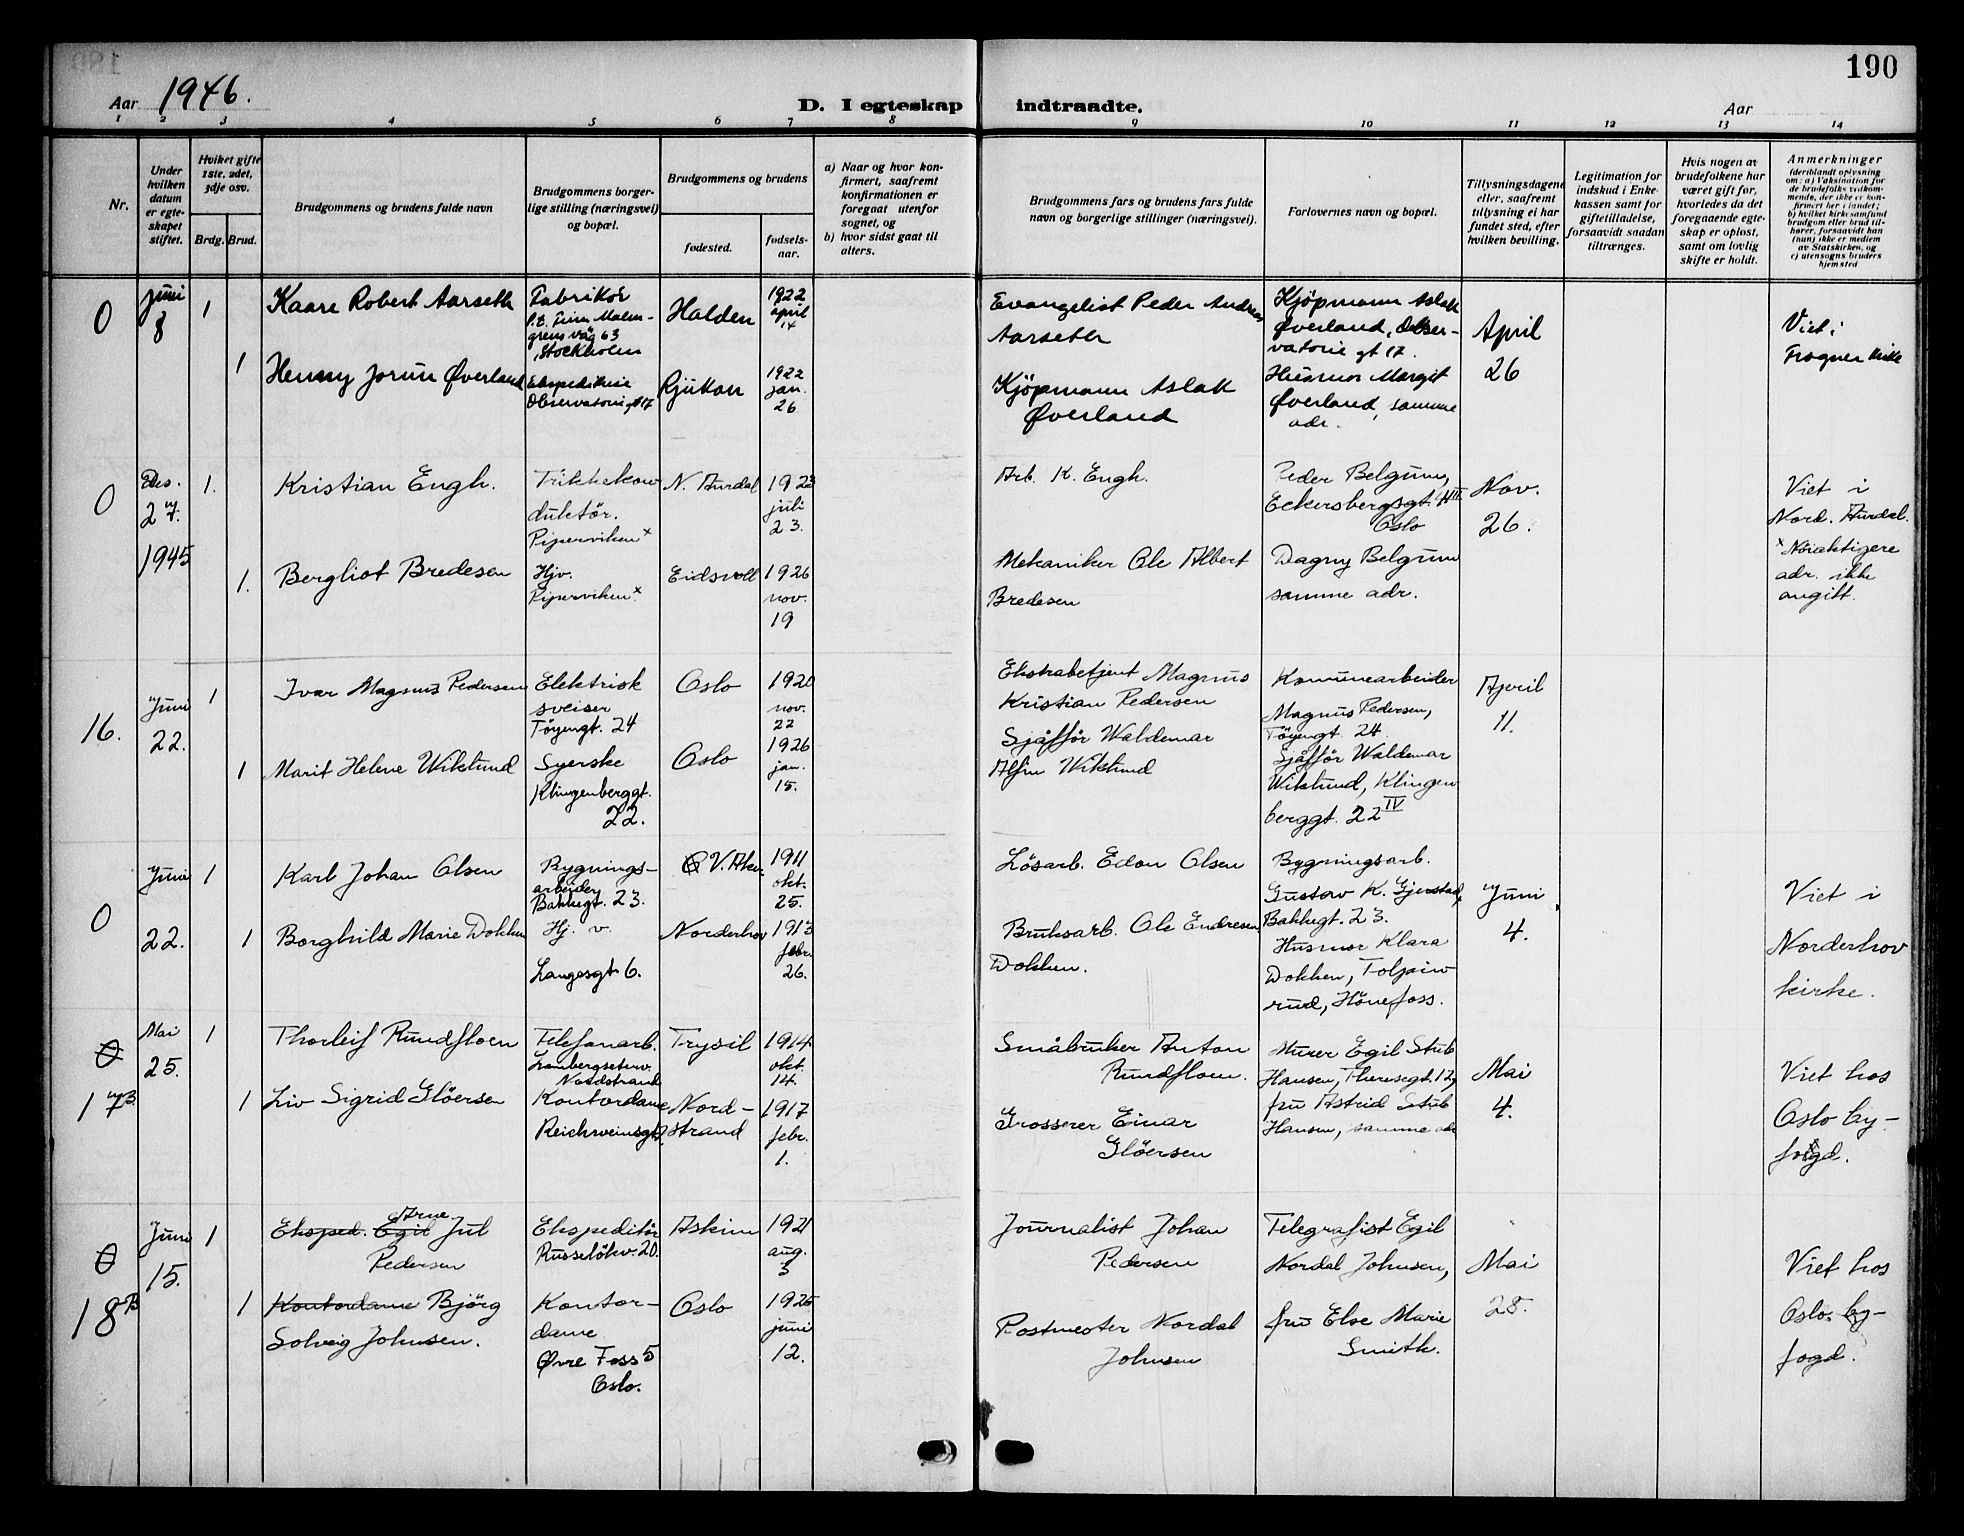 190
Aar 1946.
D. I egteskap indtraadte.
Aar
1 2 3 4 5 6 7 8 9 10 11 12 13 14
Nr.
Under
hvilken
datum
er egte-
skapet
stiftet.
Hvilket gifte
1ste, 2det,
3dje osv.
Brdg. Brud.
Brudgommens og brudens fulde navn
Brudgommens borger-
lige stilling (næringsvei)
og bopæl.
Brudgommens og brudens
fødested.
fødsels-
aar.
a) Naar og hvor kon-
firmert, saafremt
konfirmationen er
foregaat utenfor
sognet, og
b) hvor sidst gaat til
alters.
Brudgommens fars og brudens fars fulde
navn og borgerlige stillinger (næringsvei).
Forlovernes navn og bopæl.
Tillysningsdagene
eller, saafremt
tillysning ei har
fundet sted, efter
hvilken bevilling.
Legitimation for
indskud i Enke-
kassen samt for
giftetilladelse,
forsaavidt saadan
tiltrænges.
Hvis nogen av
brudefolkene har
været gift før,
hvorledes da det
foregaaende egte-
skap er opløst,
samt om lovlig
skifte er holdt.
Anmerkninger
(deriblandt oplysning
om: a) Vaksination for
de brudefolks vedkom-
mende, der ikke er kon-
firmert her i landet;
b) hvilket kirkesamfund
brudgom eller brud til-
hører, forsaavidt han
(hun) ikke er medlem
av Statskirken, og
c) utensogns bruders
hjemsted
0
Juni
8
1
Kaare Robert Aarseth
Fabrikør
p.t. Finn Malm-
grens väg 63
, Stockholm
Halden
1922
april
14
Evangelist Peder Andreas
Aarseth
Kjöpmann Aslak
Øverland, Obser-
vatorie gt 17.
April
26
Viet i
Frogner kirke
1
Henny Jorun Øverland
Ekspeditrise
Observatorie gt 17
Rjukan
1922
jan.
26
Kjöpmann Aslak
Øverland
Husmor Margit
Øverland, samme
adr.
0
Des.
27.
1945
1.
Kristian Engh.
Trikkekon
duktör.
Piperviken x
N. Aurdal
1923
juli
23.
Arb. K. Engh.
Peder Belgum,
Eckersbergsgt.
Oslo
Nov.
26.
Viet i
Nord. Aurdal.
x Nöiaktigere
adr. ikke
angitt.
1.
Bergliot Bredesen
Hjv.
Piperviken. x
Eidsvoll
1926
nov.
19
Mekaniker Ole Albert
Bredesen
Dagny Belgum
samme adr.
16.
Juni
22.
1
Ivar Magnus Pedersen
Elektrisk
sveiser
Töyengt. 24
Oslo
1920
nov.
22
Ekstrabetjent Magnus
Kristian Pedersen
Komunearbeider
Magnus Pedersen,
Töyengt. 24.
April
11.
1
Marit Helene Wiklund
Syerske
Klingenberggt.
22.
Oslo
1926
jan.
15.
Sjåffør Waldemar
Alfin Wiklund
Sjåffør Waldemar
Wiklund, Klingen
berggt. 22 IV
0
Juni
22.
1
Karl Johan Olsen
Bygnings-
arbeider
Bakkegt. 23.
V. Aker
1911
okt.
25.
Lösarb. Edon Olsen
Bygningsarb.
Gustav K. Gjerstad,
Bakkegt. 23.
Juni
4.
Viet i
Norderhov
kirke.
1
Borghild Marie Dokken
Hj. v.
Langesgt 6.
Norderhov
1913
febr.
26.
Bruksarb. Ole Endresen
Dokken.
Husmor Klara
Dokken, Tolpin
rud, Hönefoss.
0
17 B.
Mai
25.
1
Thorleif Rundfloen
Telefonarb.
Lambergseterv.
Nordstrand
Trysil
1914
okt.
14.
Småbruker Anton
Rundfloen.
Murer Egil Stub
Hansen, Theresegt. 12,
Mai
4.
Viet hos
Oslo by-
fogd.
1
Liv Sigrid Glöersen
Kontordame
Reichweinsgt 2
Nord-
strand
1917
febr.
1.
Grosserer Einar
Glöersen
fru Astrid Stub
Hansen, samme adr
0
18 B
Juni
15.
1
Eksped. Egil Arne Jul
Pedersen
Ekspeditör
Russelökv. 20.
Askim
1921
aug.
3
Journalist Johan
Pedersen
Telegrafist Egil
Nordal Johnsen,
Mai
28.
Viet hos
Oslo by-
fogd.
1
Kontordame Björg
Solveig Johnsen.
Kontor-
dame
Øvre Foss 5
Oslo.
Oslo
1925
juni
12.
Postmester Nordal
Johnsen
fru Else Marie
Smith.